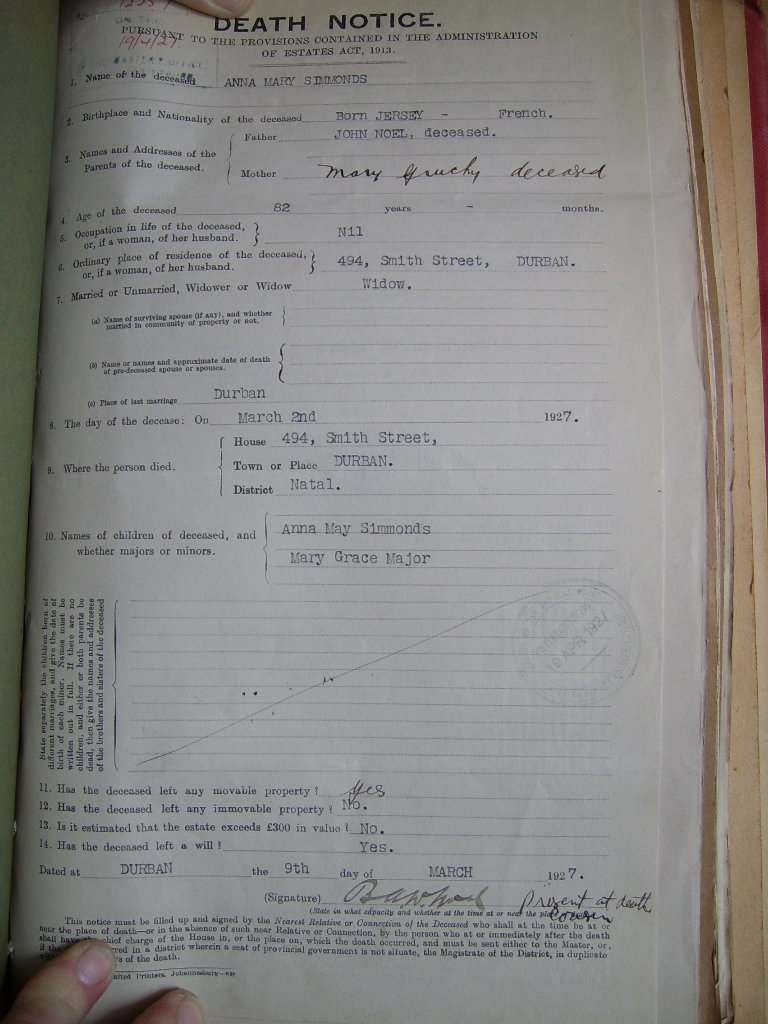 19/4/27
DEATH NOTICE.
PURSUANT TO THE PROVISIONS CONTAINED IN THE ADMINISTRATION
OF ESTATES ACT, 1913.
1. Name of the deceased ANNA MARY SIMMONDS
2. Birthplace and Nationality of the deceased Born JERSEY - French.
3. Names and Addresses of the Parents of the deceased.
Father JOHN NOEL, deceased.
Mother Mary Gruchy deceased
4. Age of the deceased 82 years - months.
5. Occupation in life of the deceased,
or, if a woman, of her husband. Nil
6. Ordinary place of residence of the deceased,
or, if a woman, of her husband. 494, Smith Street, DURBAN.
7. Married or Unmarried, Widower or Widow Widow.
(a) Name of surviving spouse (if any), and whether
married in community of property or not.
(b) Name or names and approximate date of death
of pre-deceased spouse or spouses.
(c) Place of last marriage Durban
8. The day of the decease: On March 2nd 1927.
9. Where the person died.
House 494, Smith Street,
Town or Place DURBAN.
District Natal.
10. Names of children of deceased, and
whether majors or minors.
Anna May Simmonds
Mary Grace Major
State separately the children born of
different marriages, and give the date of
birth of each minor. Names must be
written out in full. If there are no
children, and either or both parents be
dead, then give the names and addresses
of the brothers and sisters of the deceased
19 APR 1927
11. Has the deceased left any movable property? Yes
12. Has the deceased left any immovable property? No.
13. Is it estimated that the estate exceeds £300 in value? No.
14. Has the deceased left a will? Yes.
Dated at DURBAN the 9th day of MARCH 1927.
(Signature) Present at death
Cousin
(State in what capacity and whether at the time at or near the
This notice must be filled up and signed by the Nearest Relative or Connection of the Deceased who shall at the time be at or
near the place of death—or in the absence of such near Relative or Connection, by the person who at or immediately after the death
shall have chief charge of the House in, or the place on, which the death occurred, and must be sent either to the Master, or,
if the rred in a district wherein a seat of provincial government is not situate, the Magistrate of the District, in duplicate
of the death.
Printers, Johannesburg